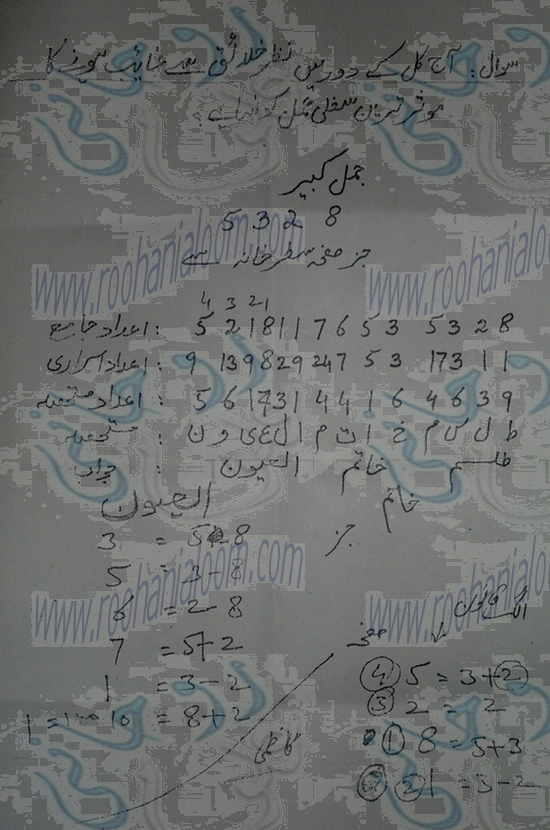 سوال: آج کل کے دور میں نظر خلائق سے غائب ہونے کا
موثر ترین سفلی عمل کونسا ہے؟
جمل کبیر
5 3 2 8
جز صفحہ سطر خانہ سے
4 3 2 1
اعداد جامع : 5 2 1 8 1 1 7 6 5 3 5 3 2 8
اعداد اسراری : 9 13 9 8 29 24 7 5 3 17 3 1 1
اعداد مستحصلہ : 5 6 1 7 3 1 4 4 1 6 4 6 3 9
مستحصلہ : ط ل س م خ ا ت م ا ل ع ی و ن
جواب : طلسم خاتم العیون
خاتم العیون
جز
3 = 5-8
5 = 3-8
6 = 2-8
7 = 5+2
1 = 3-2
1 = 10 = 8+2
صفحہ
4 5 = 3+2
3 2 = 2
1 8 = 5+3
2 1 = 3-2
کاظمی
www.roohanialoom.com
www.roohanialoom.com
www.roohanialoom.com
www.roohanialoom.com